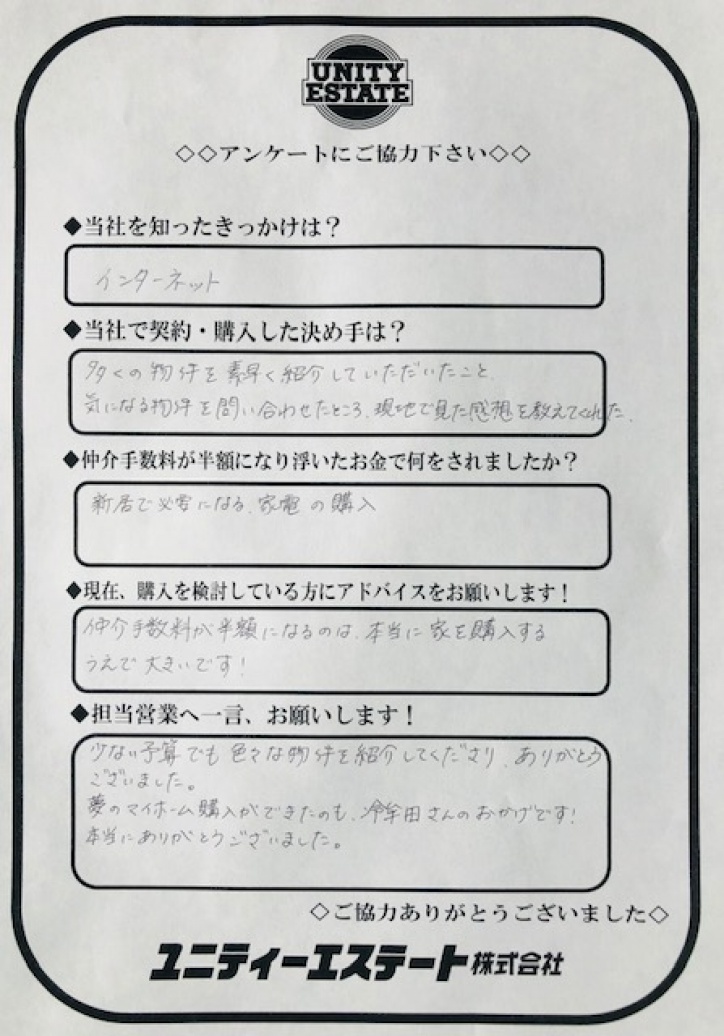 UNITY
ESTATE
◇◇アンケートにご協力下さい◇◇
◆当社を知ったきっかけは？
インターネット
◆当社で契約・購入した決め手は？
多くの物件を素早く紹介していただいたこと、
気になる物件を問い合わせたところ、現地で見た感想を教えてくれた。
◆仲介手数料が半額になり浮いたお金で何をされましたか？
新居で必要になる、家電の購入
◆現在、購入を検討している方にアドバイスをお願いします！
仲介手数料が半額になるのは、本当に家を購入する
うえで大きいです！
◆担当営業へ一言、お願いします！
少ない予算でも色々な物件を紹介してくださり、ありがとう
ございました。
夢のマイホーム購入ができたのも、冷牟田さんのおかげです！
本当にありがとうございました。
◇ご協力ありがとうございました◇
ユニティーエステート株式会社